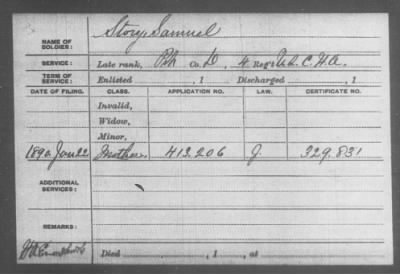 NAME OF SOLDIER: Story, Samuel
SERVICE: Late rank, Pvt Co. D, 4 Reg't U.S.C.H.A.
TERM OF SERVICE: Enlisted , 1 Discharged , 1
DATE OF FILING. CLASS. APPLICATION NO. LAW. CERTIFICATE NO.
Invalid,
Widow,
Minor,
1890 Jan 22 Mother. 413.206 J. 329.831
ADDITIONAL SERVICES:
REMARKS:
Died , 1 , at